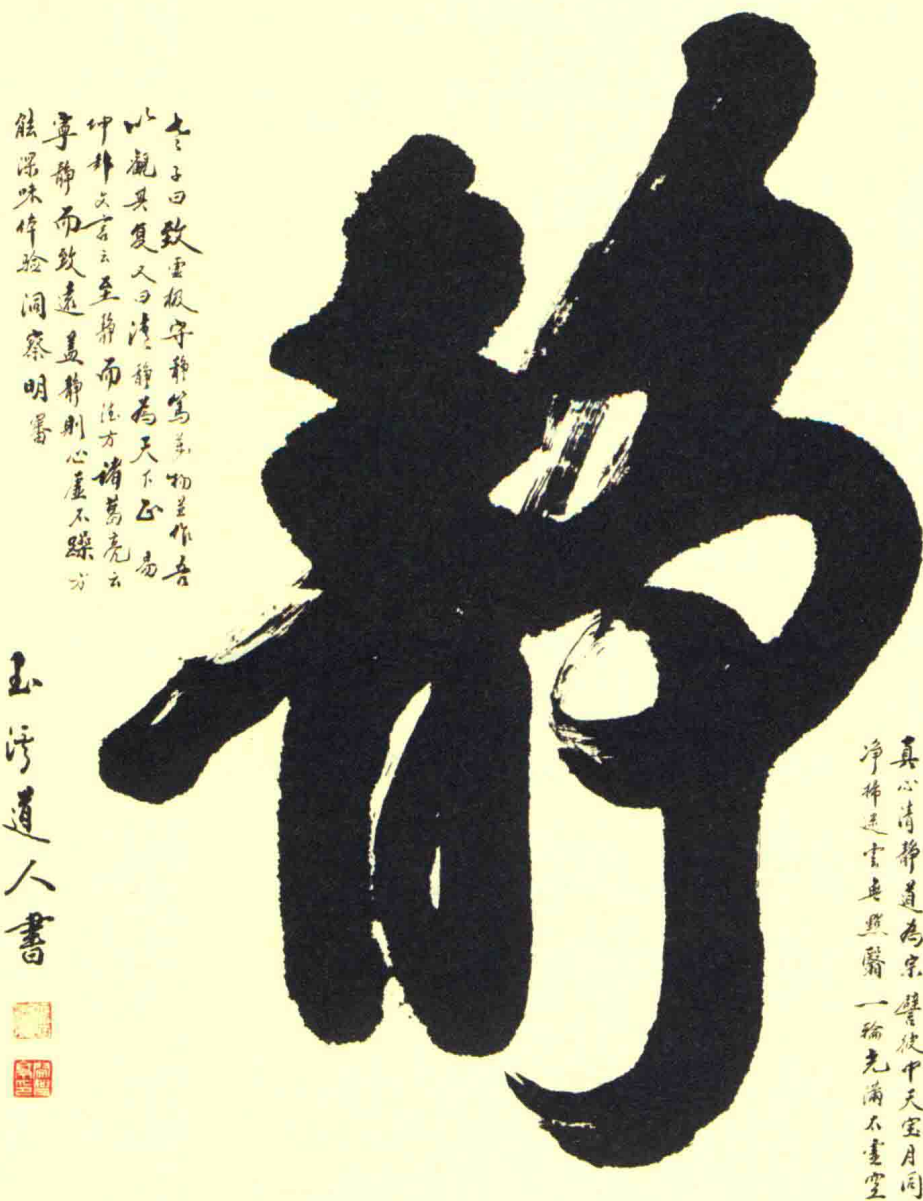 真心清静道為宗譬彼中天宝月同
净掃迷雲無點翳一輪光滿太虚空
静
老子曰致虚极守静篤萬物並作吾
以觀其复又曰清静為天下正易
坤卦文言云至静而德方諸葛亮云
寧静而致遠盖静則心虚不躁方
能深味体验洞察明審
玉溪道人書